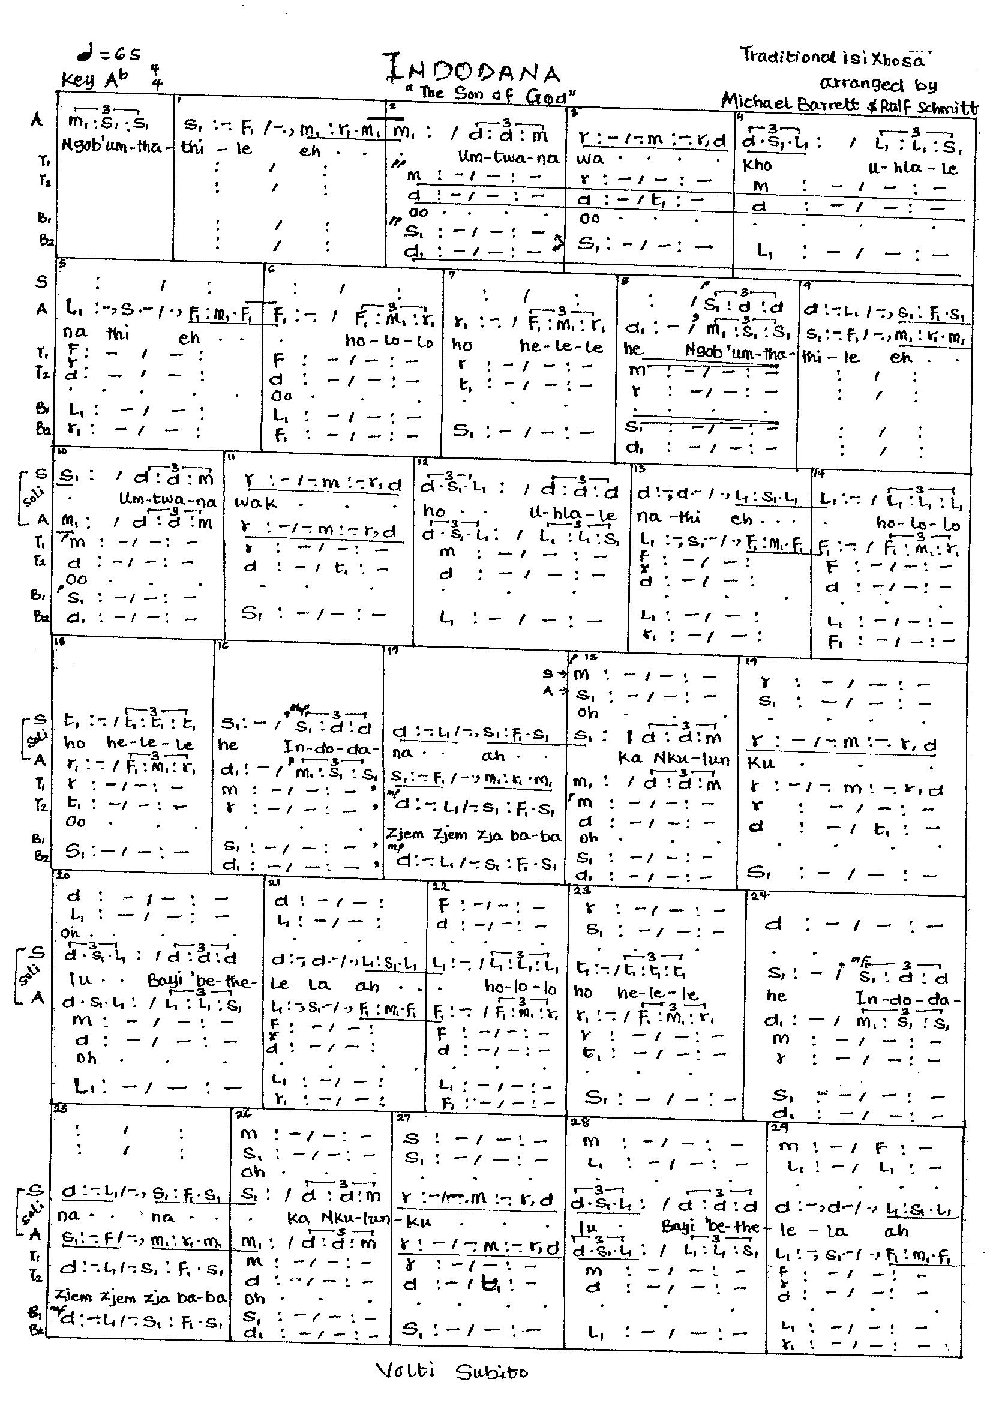 ♩=65
Key Ab 4/4
INDODANA
"The Son of God"
Traditional isiXhosa
arranged by
Michael Barrett & Ralf Schmitt
A m₁:s₁:s₁ s₁:-.F₁/-.,m₁:r₁.m₁ m₁: / d:d:m r:-/-m:-.r,d d.s₁.L₁: / L₁:L₁:s₁
Ngob'um-tha-thi-le eh . . um-twa-na wa . . . kho u-hla-le
T₁ m :-/-:- r :-/-:- m :-/-:-
T₂ d :-/-:- d :-/t₁:- d :-/-:-
oo . . . oo . . .
B₁ s₁ :-/-:-
B₂ d₁ :-/-:- s₁ :-/-:- L₁ :-/-:-
S : / : : / : : / : : / s₁:d:d d:-.L₁/-.,s₁:F₁.s₁
A L₁:-.,s₁.-/-.,F₁:m₁.F₁ F₁:-/F₁:m₁:r₁ r₁:-/F₁:m₁:r₁ d₁:-/m₁:s₁:s₁ s₁:-.F₁/-.,m₁:r₁.m₁
na thi eh . . ho-lo-lo ho he-le-le he Ngob'um-tha-thi-le eh . .
T₁ F :-/-: F :-/-:- r :-/-:- m :-/-:-
r
T₂ d :-/-: d :-/-:- t₁ :-/-:- r :-/-:-
. . . oo . . .
B₁ L₁ :-/-: L₁ :-/-:- s₁ :-/-:-
B₂ r₁ :-/-: F₁ :-/-:- s₁ :-/-:- d₁ :-/-:-
Soli
S s₁: / d:d:m r:-/-m:-.r,d d.s₁.L₁: / d:d:d d:-.,d.-/-.,L₁:s₁.L₁ L₁:-/L₁:L₁:L₁
um-twa-na wak . . . ho . . u-hla-le na-thi eh . . . ho-lo-lo
A m₁: / d:d:m r:-/-m:-.r,d d.s₁.L₁: / L₁:L₁:s₁ L₁:-.,s₁.-/-.,F₁:m₁.F₁ F₁:-/F₁:m₁:r₁
T₁ m :-/-:- r :-/-:- m :-/-:- F :-/-: F :-/-:-
r
T₂ d :-/-:- d :-/t₁:- d :-/-:- d :-/-: d :-/-:-
oo . . .
B₁ s₁ :-/-:- L₁ :-/-: L₁ :-/-:-
B₂ d₁ :-/-:- s₁ :-/-:- L₁ :-/-:- r₁ :-/-: F₁ :-/-:-
S→ m :-/-:- r :-/-:-
A→ s₁ :-/-:- s₁ :-/-:-
oh . . .
Soli
S t₁:-/t₁:t₁:t₁ s₁:-/s₁:d:d d:-.L₁/-.,s₁:F₁.s₁ s₁: / d:d:m r:-/-m:-.r,d
ho he-le-le he In-do-da-na . . ah . . Ka Nku-lun Ku . . .
A r₁:-/F₁:m₁:r₁ d₁:-/m₁:s₁:s₁ s₁:-.F₁/-.,m₁:r₁.m₁ m₁: / d:d:m r:-/-m:-.r,d
T₁ r :-/-:- m :-/-:- d:-.L₁/-.s₁:F₁.s₁ m :-/-:- r :-/-:-
T₂ t₁ :-/-:- r :-/-:- d :-/-:- d :-/t₁:-
oo . . . Zjem Zjem zja ba-ba oh . . .
B₁ s₁ :-/-:- s₁ :-/-:-
B₂ s₁ :-/-:- d₁ :-/-:- mf d:-.L₁/-.s₁:F₁.s₁ d₁ :-/-:- s₁ :-/-:-
d :-/-:- d :-/-: F :-/-:- r :-/-:- d :-/-:-
L₁ :-/-:- L₁ :-/-: d :-/-:- s₁ :-/-:-
oh . . .
Soli
S d.s₁.L₁: / d:d:d d:-.,d.-/-.,L₁:s₁.L₁ L₁:-/L₁:L₁:L₁ t₁:-/t₁:t₁:t₁ s₁:-/s₁:d:d
lu . . Bayi 'be-the-Le La ah . . ho-lo-lo ho he-le-le he In-do-da-
A d.s₁.L₁: / L₁:L₁:s₁ L₁:-.,s₁.-/-.,F₁:m₁.F₁ F₁:-/F₁:m₁:r₁ r₁:-/F₁:m₁:r₁ d₁:-/m₁:s₁:s₁
m :-/-:- F :-/-: F :-/-:- r :-/-:- m :-/-:-
r
d :-/-:- d :-/-: d :-/-:- t₁ :-/-:- r :-/-:-
oh . . .
L₁ :-/-:- L₁ :-/-: L₁ :-/-:- s₁ :-/-:- s₁ :-/-:-
r₁ :-/-: F₁ :-/-:- d₁ :-/-:-
: / : m :-/-:- s :-/-:- m :-/-:- m :-/F:-
: / : s₁ :-/-:- s₁ :-/-:- L₁ :-/-:- L₁ :-/L₁:-
oh . . .
Soli
S d:-.L₁/-.,s₁:F₁.s₁ s₁: / d:d:m r:-/-m:-.r,d d.s₁.L₁: / d:d:d d:-.,d.-/-.,L₁:s₁.L₁
na . . na . . ka Nku-lun-ku . . . lu . Bayi 'be-the-le-La ah
A s₁:-.F₁/-.,m₁:r₁.m₁ m₁: / d:d:m r:-/-m:-.r,d d.s₁.L₁: / L₁:L₁:s₁ L₁:-.,s₁.-/-.,F₁:m₁.F₁
T₁ d:-.L₁/-.s₁:F₁.s₁ m :-/-:- r :-/-:- m :-/-:- F :-/-:-
r
T₂ d :-/-:- d :-/t₁:- d :-/-:- d :-/-:-
Zjem Zjem zja ba-ba oh . . .
B₁ mf d:-.L₁/-.s₁:F₁.s₁ s₁ :-/-:- L₁ :-/-:-
B₂ d₁ :-/-:- s₁ :-/-:- L₁ :-/-:- r₁ :-/-:-
Volti Subito